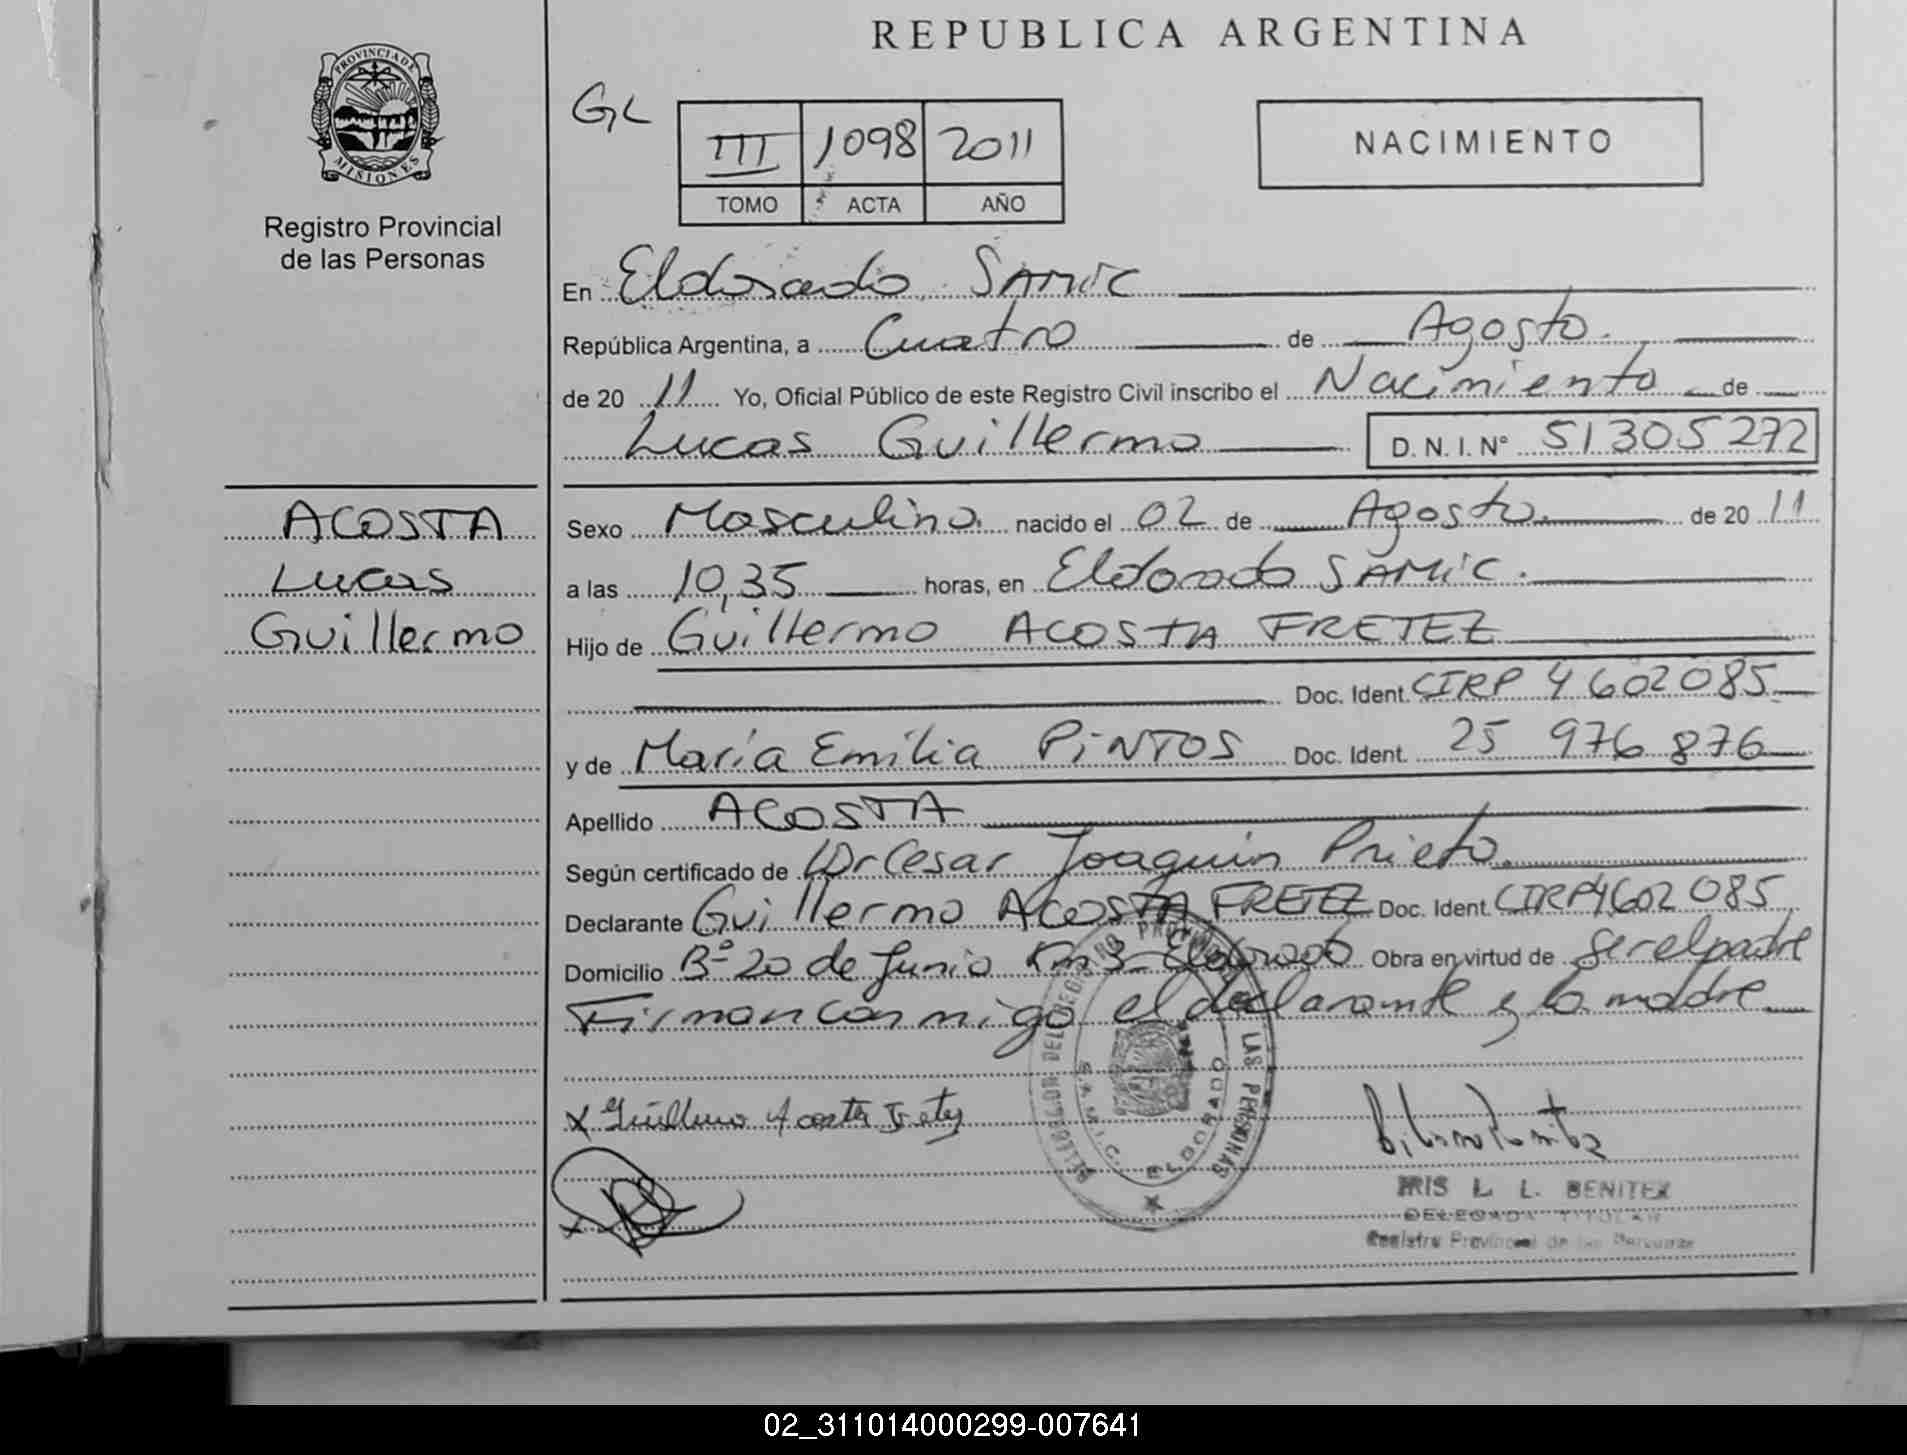 REPUBLICA ARGENTINA
PROVINCIA DE MISIONES
Registro Provincial
de las Personas
GL
III 1098 2011
TOMO ACTA AÑO
NACIMIENTO
En Eldorado SAMIC
República Argentina, a Cuatro de Agosto.
de 20 11 Yo, Oficial Público de este Registro Civil inscribo el Nacimiento de
Lucas Guillermo D. N. I. Nº 51305272
ACOSTA
Lucas
Guillermo
Sexo Masculino. nacido el 02 de Agosto. de 20 11
a las 10,35 horas, en Eldorado SAMIC.
Hijo de Guillermo ACOSTA FRETEZ
Doc. Ident. CIRP 4602085
y de María Emilia PINTOS Doc. Ident. 25 976 876
Apellido ACOSTA
Según certificado de Dr Cesar Joaquin Prieto.
Declarante Guillermo ACOSTA FRETEZ Doc. Ident. CIRP 4602 085
Domicilio Bº 20 de Junio Km 3 - Eldorado Obra en virtud de ser el padre
Firman conmigo el declarante y la madre
x Guillermo Acosta Fretez
x
S.A.M.I.C. ELDORADO
IRIS L. L. BENITEZ
DELEGADA TITULAR
Registro Provincial de las Personas
02_311014000299-007641